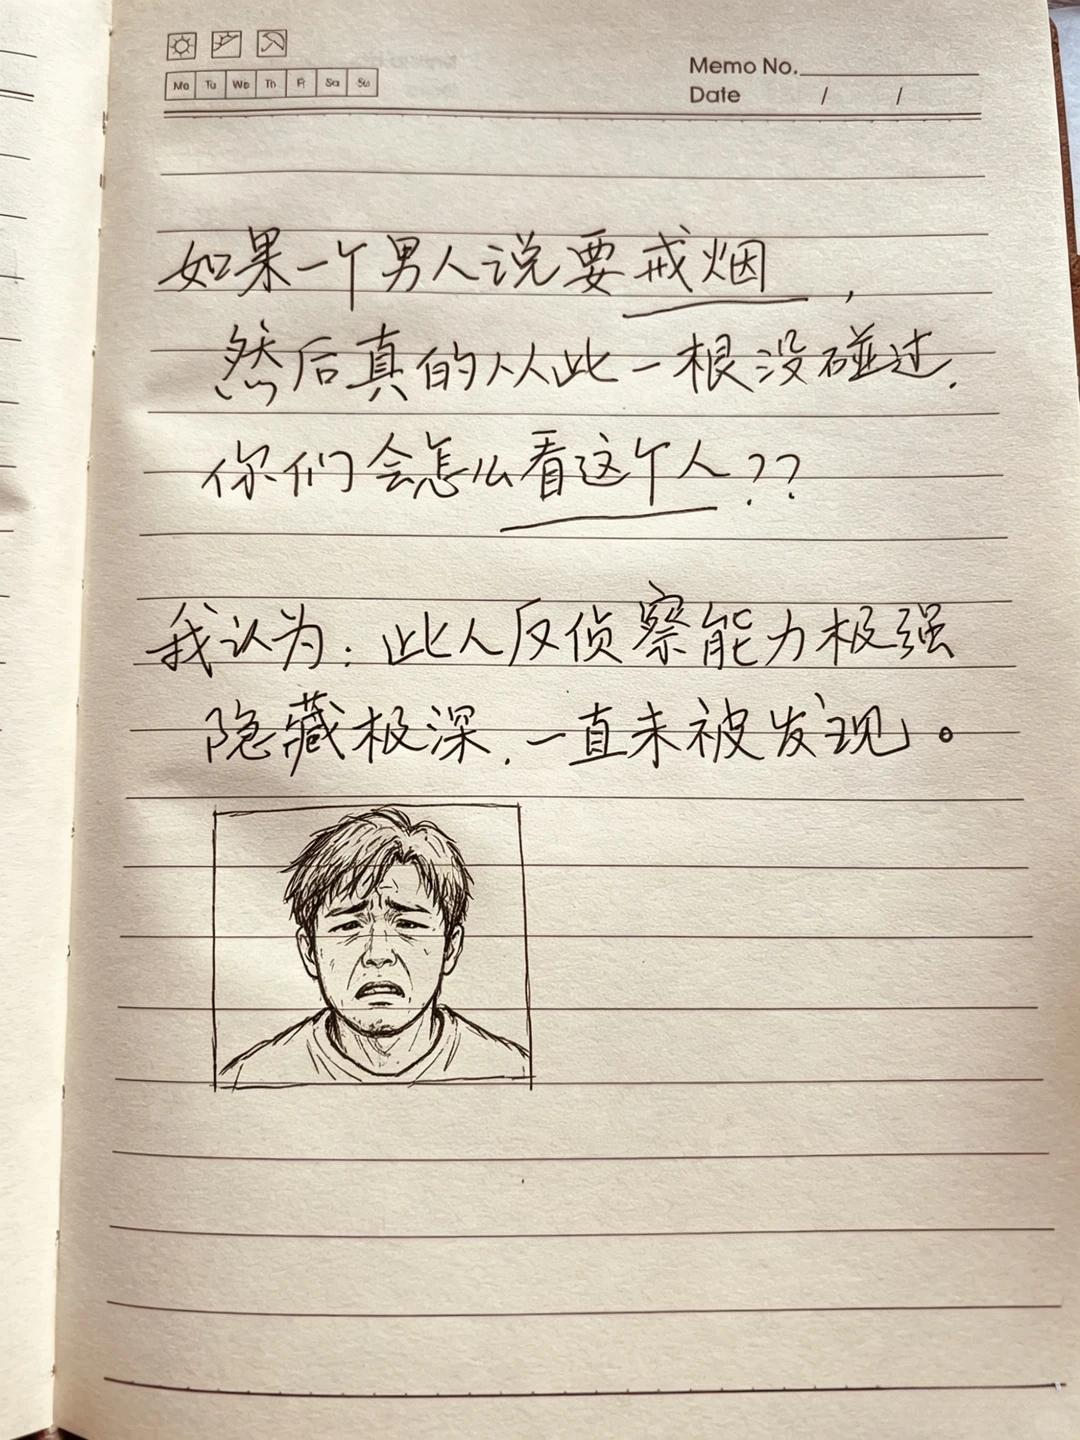 Memo No.
Mo Tu We Th Fr Sa Su
Date / /
如果一个男人说要戒烟，
然后真的从此一根没碰过.
你们会怎么看这个人??
我认为: 此人反侦察能力极强
隐藏极深. 一直未被发现。